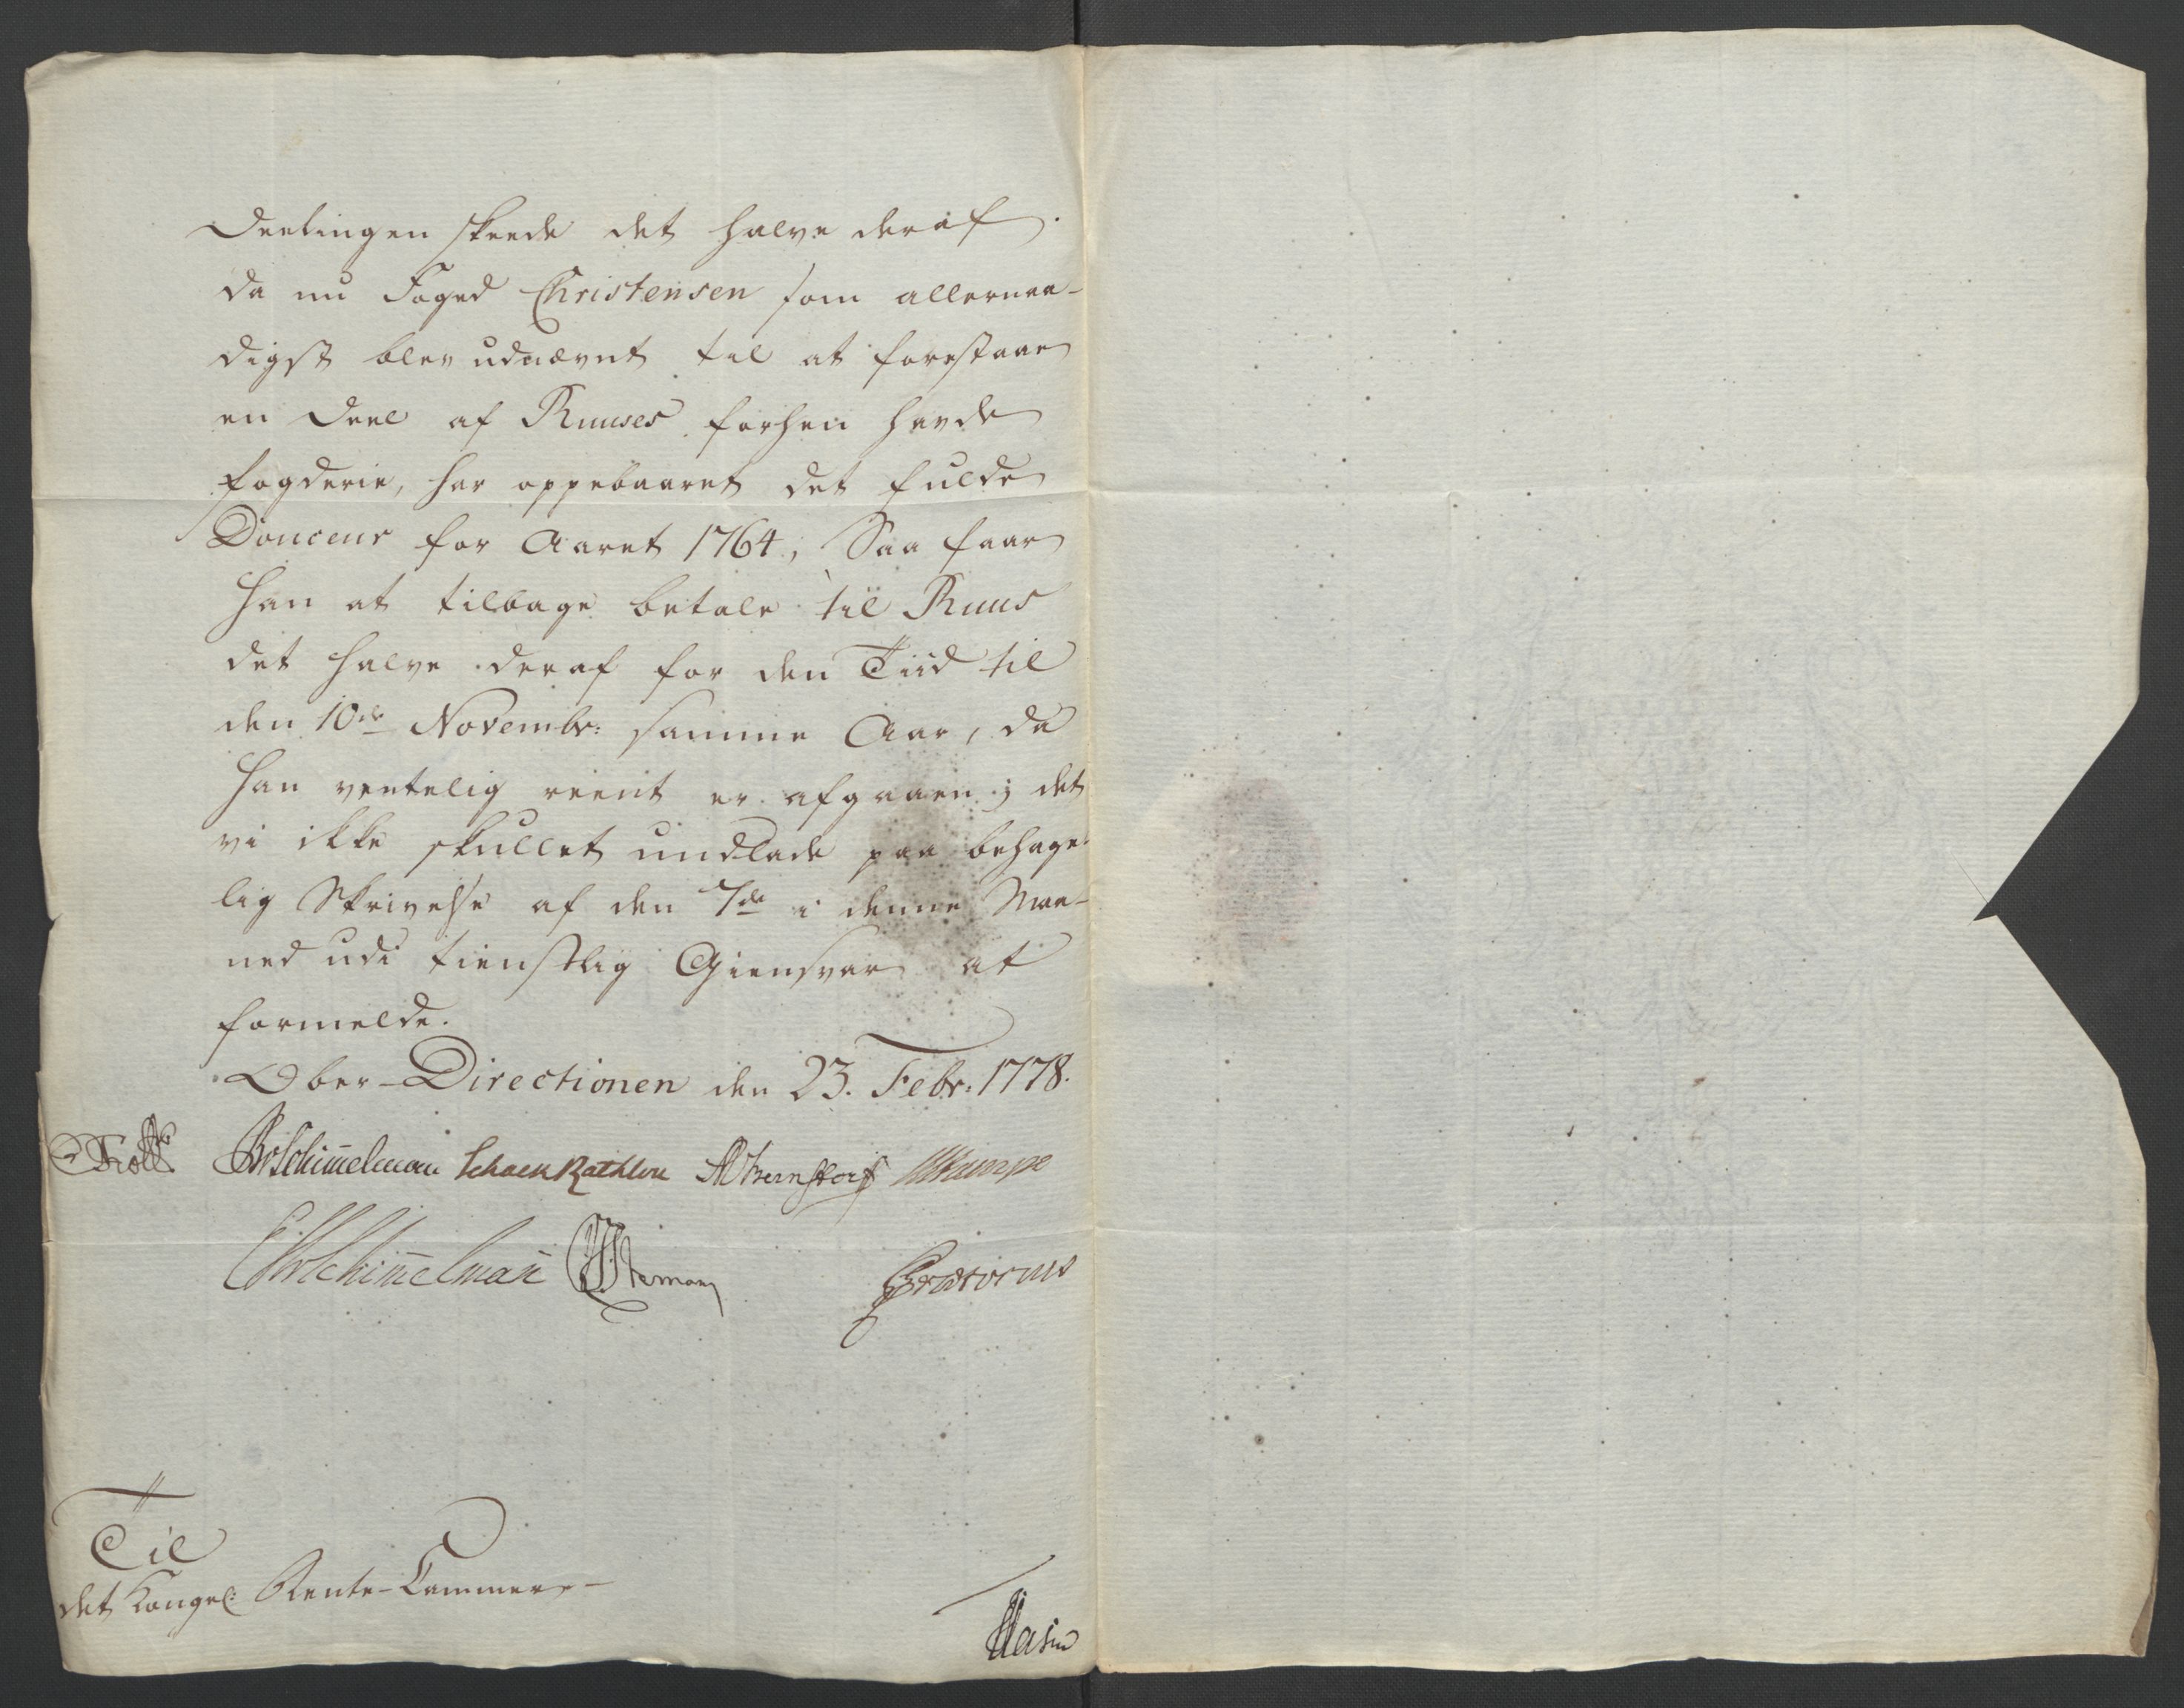 Deelingen skeede det halve deraf.
da nu Foged Christensen som allernaa-
digst blev udnævnt til at forestaae
en Deel af Ruuses forhen havde
fogderie, har oppebaaret det fulde
Douceur for Aaret 1764, Saa faar
han at tilbage betale til Ruus
det halve deraf for den Tiid til
den 10de Novembr: samme Aar, da
han ventelig reent er afgaaen; det
vi ikke skullet undlade paa behage-
lig Skrivelse af den 7de i denne Maa-
ned udi tienstlig Giensvar at
formelde.
Ober-Directionen den 23. Febr: 1778.
Schimmelman Schack Rathlou Bernstorf
Schimmelman Stemann Prætorius
Til
det Kongel: Rente-Cammer-